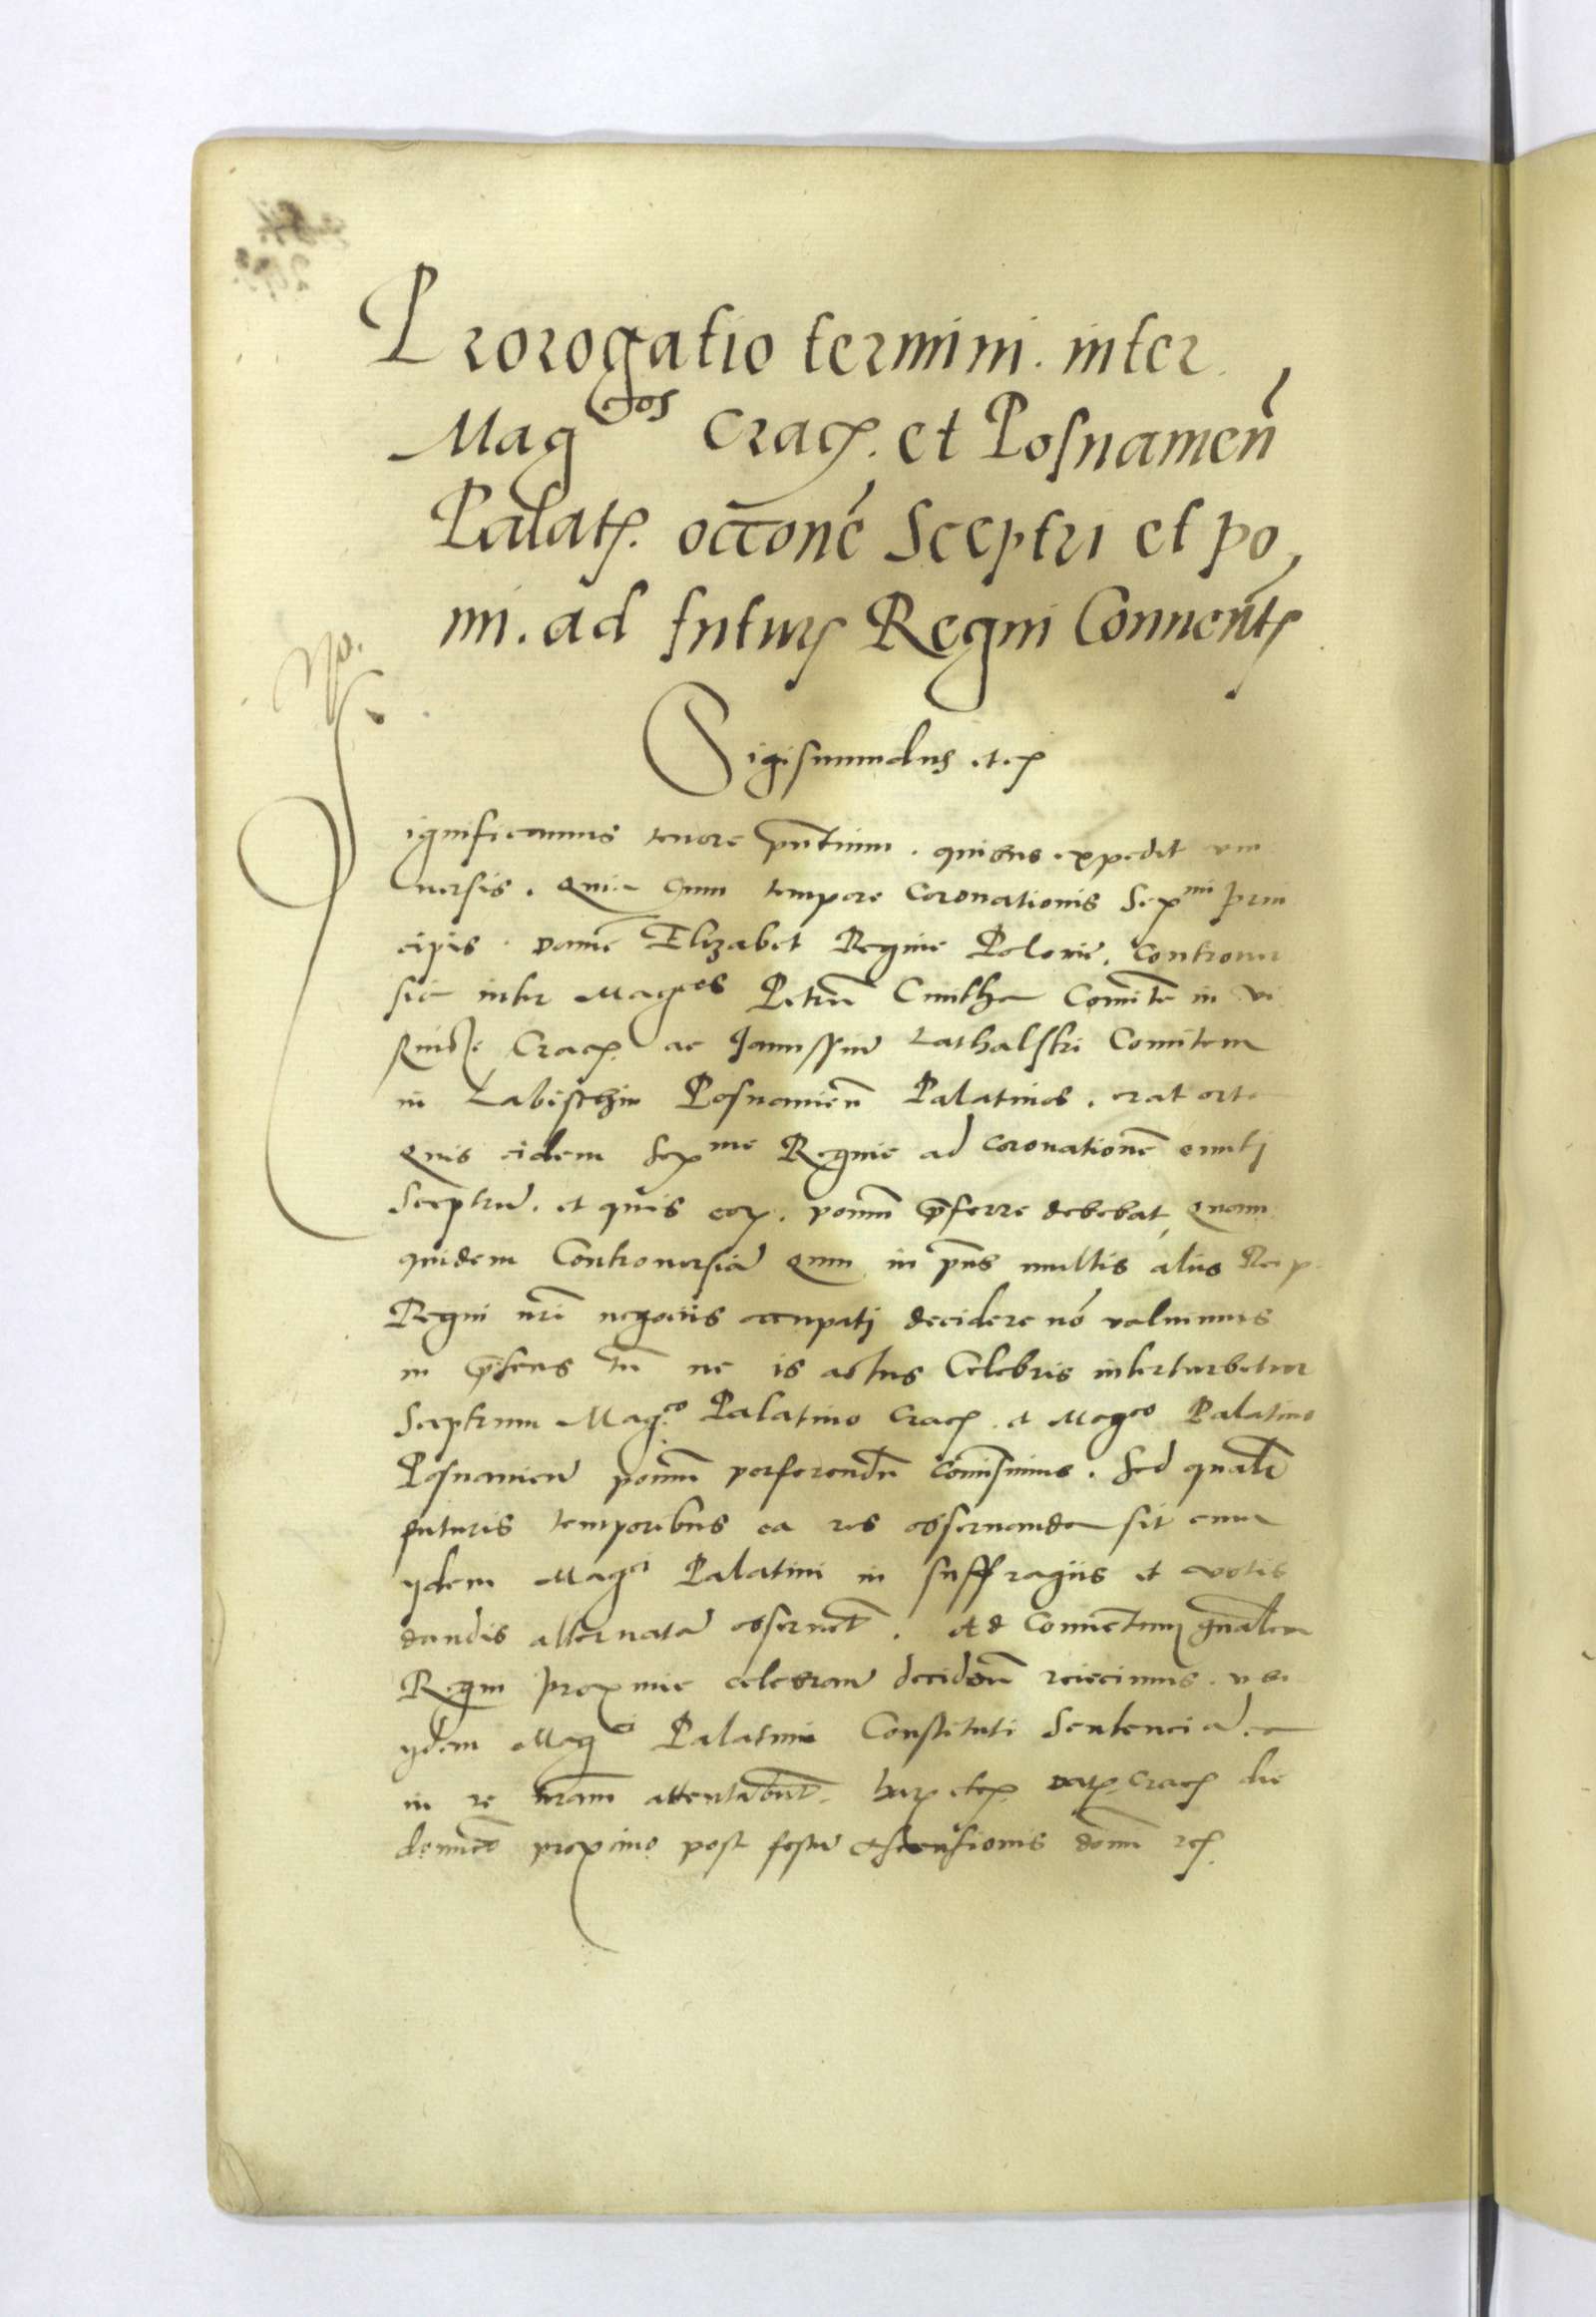 Prorogatio termini. inter
Magcos Crac. et Posnamen
Palat. occone Sceptri et po,
mi. ad futur Regni Connent
Sigismundus etc
Significamus tenore pntium. quibus expedit vni
uersis. Quia Cum tempore Coronationis Serme prin
cipis dome Elizabet Regine Polonie. Controuer
sia inter Magcos Petru Cmitha Comite in Vi
Crac. ac Janussiu Lathalski Comitem
in Labischin Posnanien Palatinos. erat orta
Quis eidem Serme Regine ad coronatione eunti
Sceptru. et quis eor. pomu pferre debebat, Quam
quidem Controuersia Qum in pns multis aliis Reip
Regni nri negotiis occupati decidere no voluimus
in psens tn ne is actus Celebris interturbetur
Sceptrum Magco Palatino Crac. et Magco Palatino
Posnanien pomu perferendu comisimus. Sed quale
futuris temporibus ea res obseruanda sit cum
ydem Magci Palatini in suffragiis et votis
dandis alternata obseruet. Ad Conuentum gnalem
Regni proxime celebran decidenu reiecimus. ubi
ydem Magci Palatini Constituti Sentencia
in re nram attentabut. har etc. Dat. Crac die
dominco proximo post festu Ascensionis domi